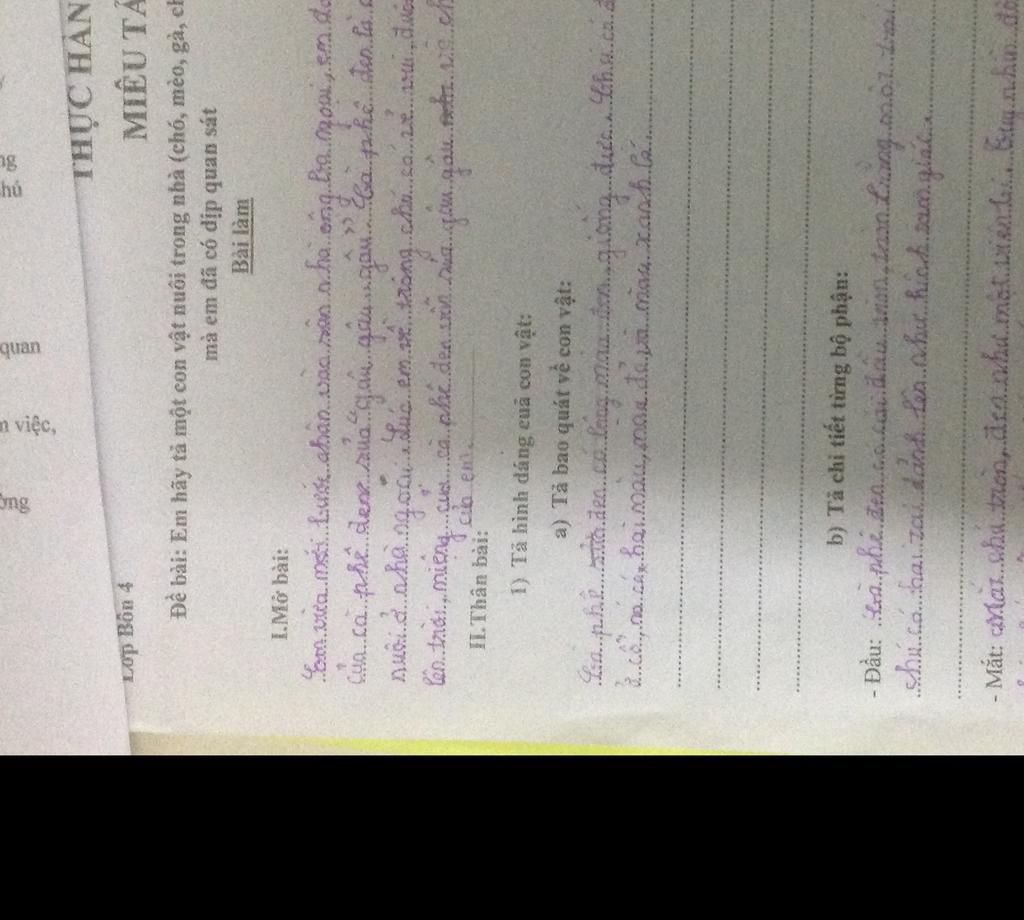 ng
hú
quan
n việc,
ờng
THỰC HÀN
MIÊU TẢ
Lớp Bốn 4
Đề bài: Em hãy tả một con vật nuôi trong nhà (chó, mèo, gà, ch
mà em đã có dịp quan sát
Bài làm
I.Mở bài:
Em vừa mới bước chân vào sân nhà ông bà ngoại, em đã
của cà phê đen sủa “gâu gâu gâu gâu” Cà phê đen là
nuôi ở nhà ngoại. Lúc em về trông chú có vẻ vui, đuôi
lên trời, miệng của cà phê đen vẫn sủa gâu gâu về
của em.
II.Thân bài:
1) Tả hình dáng cuả con vật:
a) Tả bao quát về con vật:
Cà phê đen có lông màu giống đực. Chú có
ở cổ, nó có hai màu, màu đỏ và màu xanh lá.
b) Tả chi tiết từng bộ phận:
- Đầu: Cà phê đen có cái đầu tròn bằng một trái
chú có hai tai dảnh lên như hình tam giác.
- Mắt: Mắt chú tròn, đen như một viên bi. nhìn